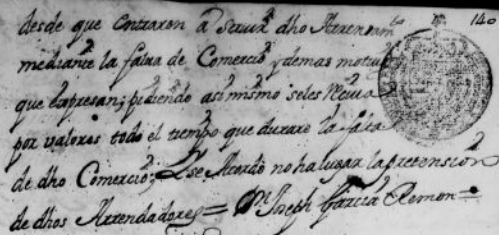 140
desde que entraron a servir dho Arrendam.to
mediante la falta de Comercio y demas motivos
que expresan; pidiendo asimismo seles reciva
por valores todo el tiempo que durare la falta
de dho Comercio; Ese Acordó no ha lugar la pretensión
de dhos Arrendadores = Joseph Garcia Remon =